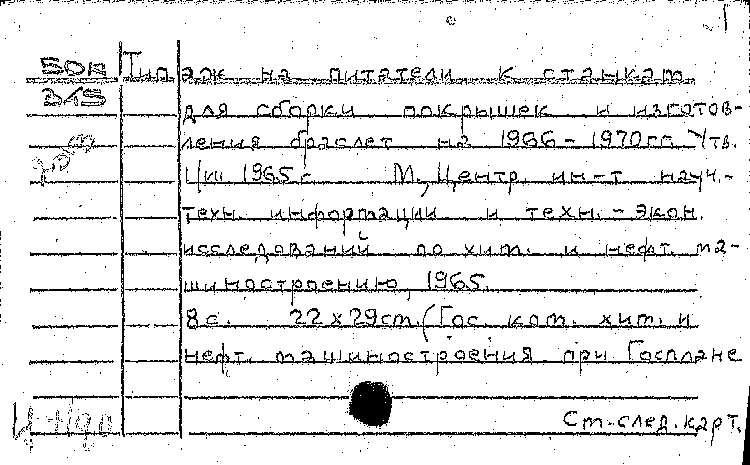 Типаж на питатели к станкам
для сборки покрышек и изготов-
ления браслет на 1966-1970гг. Утв.
1965г. М., Центр. ин-т науч.-
техн. информации и техн.-экон.
исследований по хим. и нефт. ма-
шиностроению, 1965.
8с. 22x29см. (Гос. ком. хим. и
нефт. машиностроения при Госплане
См. след. карт.